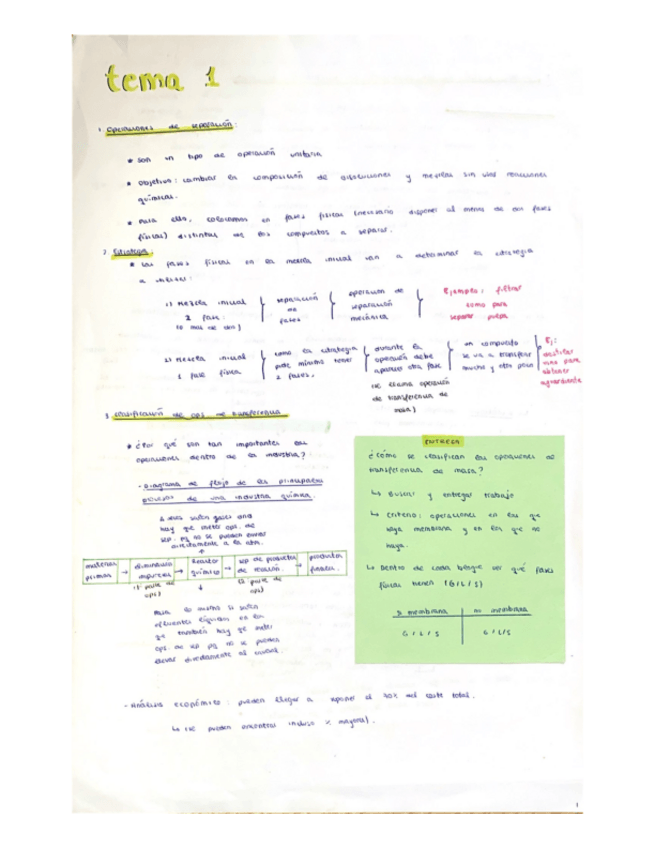 tema 1
1. Operaciones de separación:
* son un tipo de operación unitaria
* objetivo: cambiar la composición de disoluciones y mezclas sin usar reacciones
químicas.
* para ello, colocamos en fases físicas (necesario disponer al menos de dos fases
físicas) distintas los compuestos a separar.
2. Estrategia:
* las fases físicas en la mezcla inicial van a determinar la estrategia
a utilizar:
1) Mezcla inicial
2 fase:
(o mas de dos)
separación
de
fases
operación de
separación
mecánica
Ejemplo: filtrar
como para
separar pulpa
2) Mezcla inicial
1 fase física
como la estrategia
pide mínimo tener
2 fases,
durante la
operación debe
aparecer otra fase
(se llama operación
de transferencia de
masa)
un compuesto
se va a transferir
mucho y otro poco
Ej:
destilar
vino para
obtener
aguardiente
3. clasificación de ops. de transferencia
* ¿Por qué son tan importantes las
operaciones dentro de la industria?
- Diagrama de flujo de los principales
procesos de una industria química.
hay que meter ops. de
sep. pq no se pueden enviar
directamente a la atm.
materias
primas
→ eliminación
impurezas
→ Reactor
químico
→ sep de productos
de reacción.
→ productos
finales.
(1 parte de
ops)
(2 parte de
ops)
Para lo mismo si salen
efluentes líquidos en la
que también hay que meter
ops. de sep pq no se pueden
enviar directamente al
ENTREGA
¿cómo se clasifican las operaciones de
transferencia de masa?
↳ Buscar y entregar trabajo
↳ Criterio: operaciones en las que
haya membrana y en los que no
haya.
↳ Dentro de cada bloque ver qué fases
físicas tienen (G/L/S)
si membrana | no membrana
G/L/S | G/L/S
- Análisis económico: pueden llegar a suponer el 70% del coste total.
↳ (se pueden encontrar incluso % mayores).
1